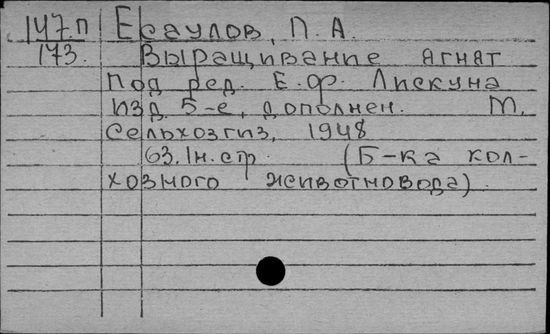 147.п Есаулов, П. А.
173. Выращивание ягнят
Под ред. Е.Ф. Лискуна
Изд. 5-е, дополнен. М.
Сельхозгиз, 1948
63.1н.стр. (Б-ка кол-
хозного животновода).